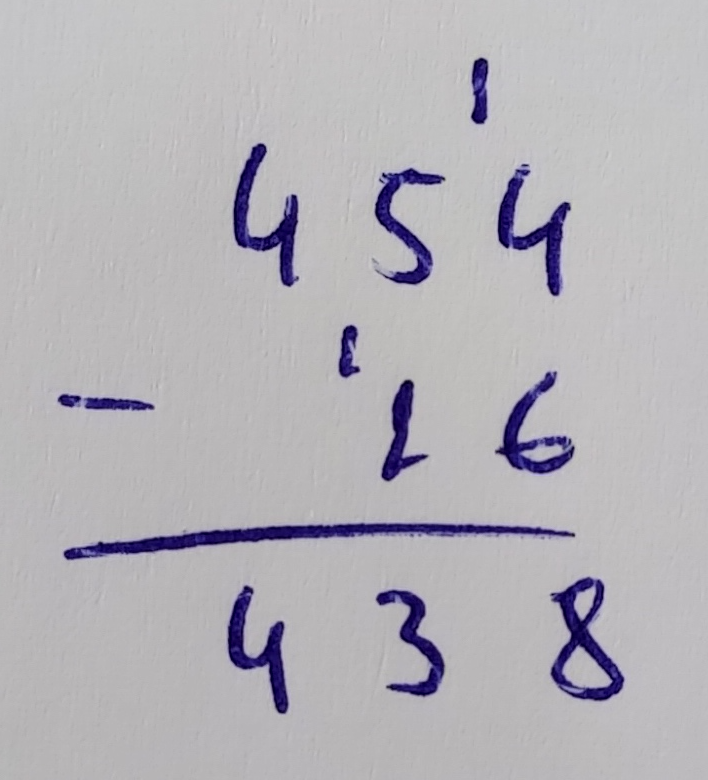 1
454
1
- 16
438